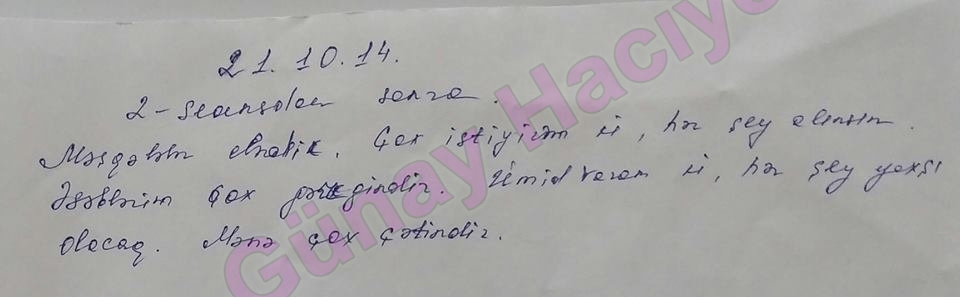 21.10.14.
2-seansdan sonra.
Məşqələlər etdik. Çox istiyirəm ki, hər şey alınsın.
Əsəblərim çox gərgindir. Ümidvaram ki, hər şey yaxşı
olacaq. Mənə çox çətindir.
Günay Hacıye